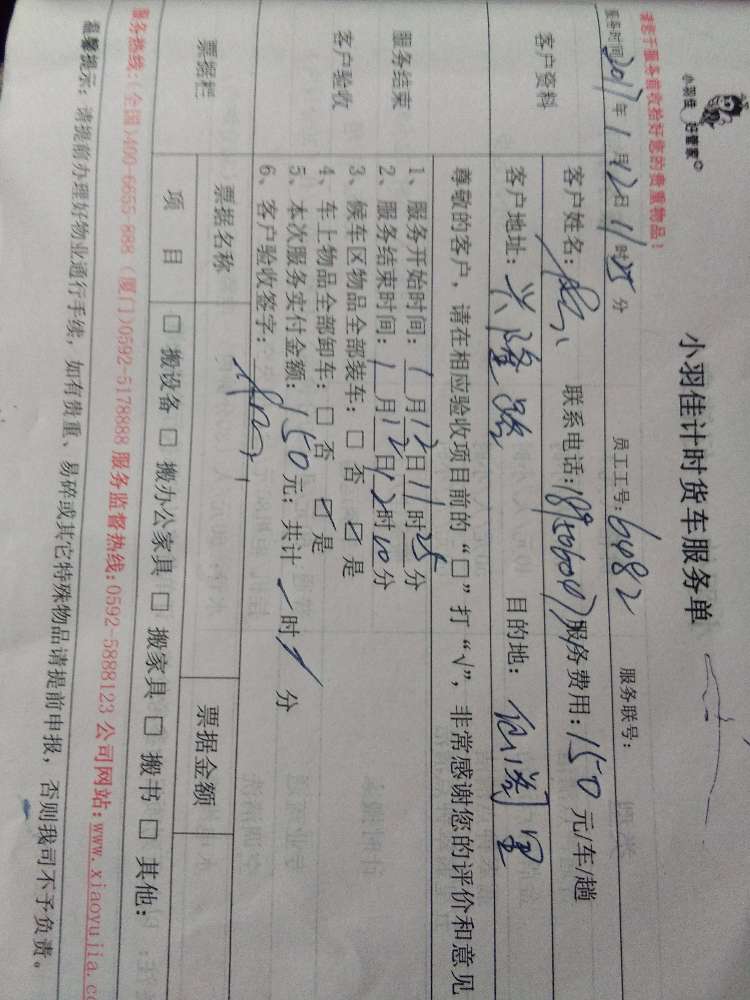 小羽佳 好管家
小羽佳计时货车服务单
请您于服务前收拾好您的贵重物品！
服务时间2017年1月12日11时25分 员工工号：6082 服务联号：
客户资料
客户姓名： 联系电话： 服务费用：150元/车/趟
客户地址：兴隆路 目的地：仙阁里
尊敬的客户，请在相应验收项目前的“□”打“√”，非常感谢您的评价和意见
服务结束
客户验收
1、服务开始时间：1月12日11时25分
2、服务结束时间：1月12日12时10分
3、候车区物品全部装车：□ 否 ☑ 是
4、车上物品全部卸车：□ 否 ☑ 是
5、本次服务实付金额：150元；共计 时 分
6、客户验收签字：
票据栏
票据名称 票据金额
项 目 □ 搬设备 □ 搬办公家具 □ 搬家具 □ 搬书 □ 其他：
服务热线：(全国)400-6655-888 (厦门)0592-5178888 服务监督热线：0592-5888123 公司网站：www.xiaoyujia.c
温馨提示：请提前办理好物业通行手续，如有贵重、易碎或其它特殊物品请提前申报，否则我司不予负责。